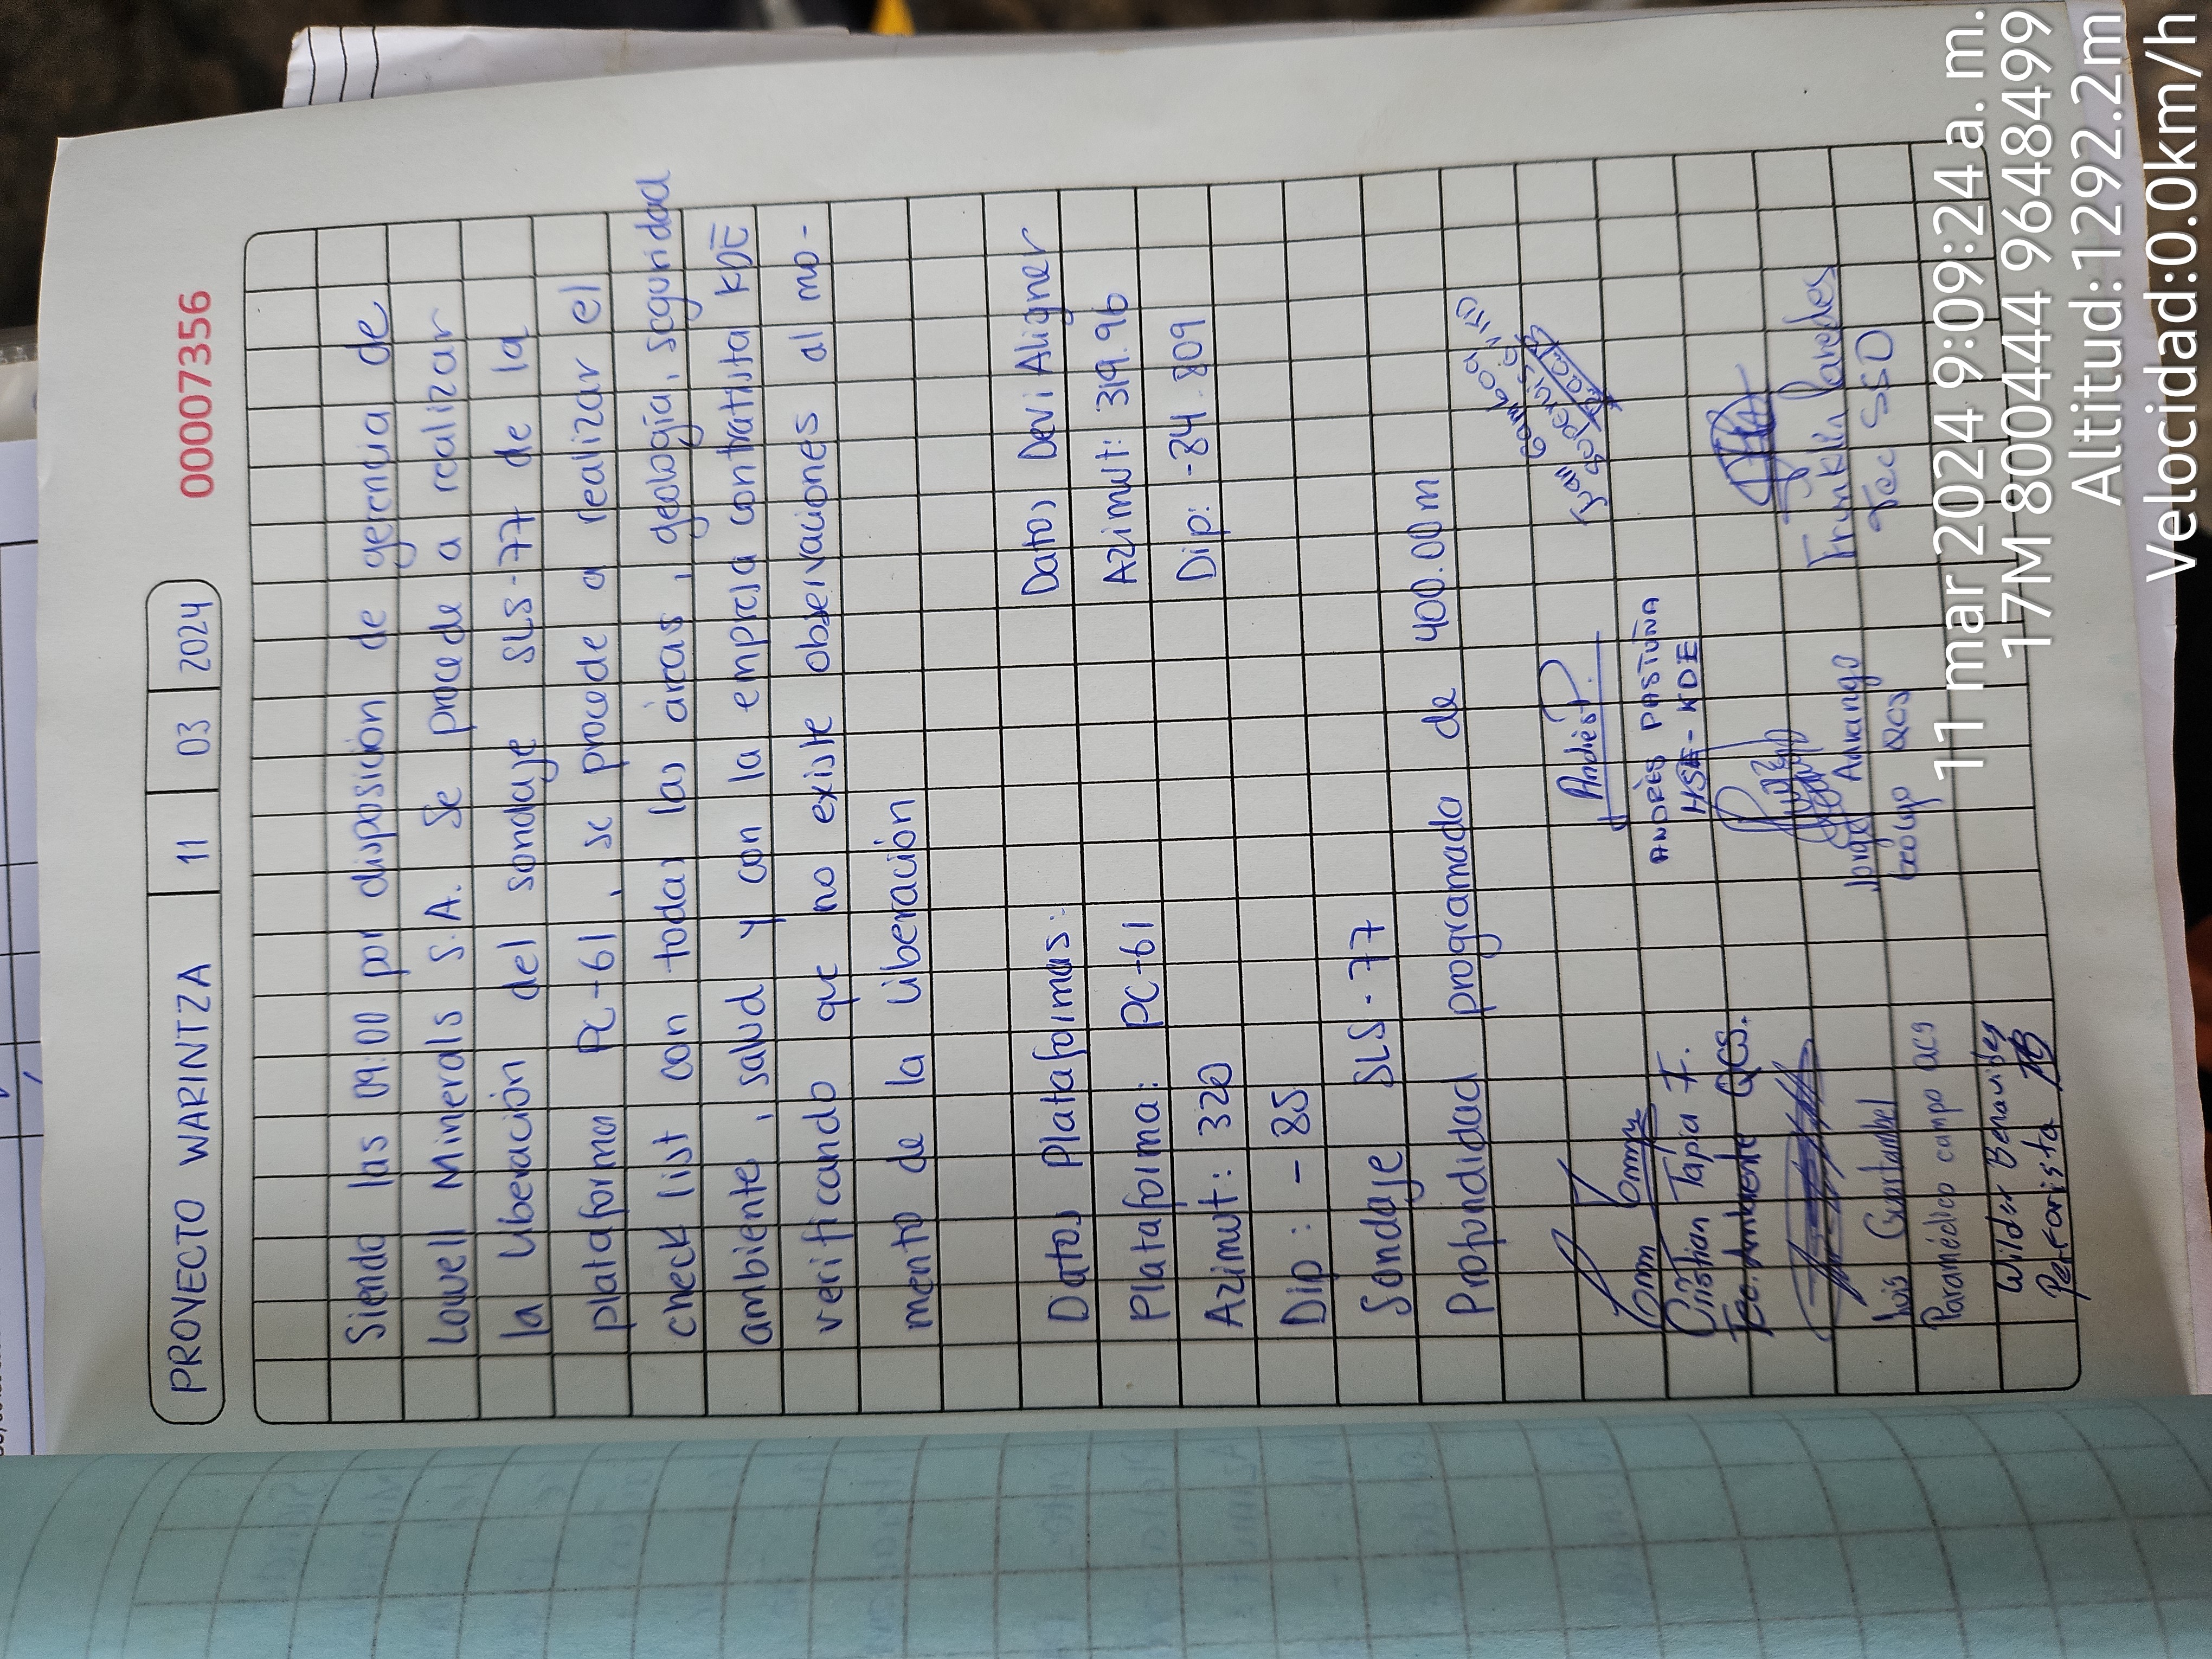 PROYECTO WARINTZA 11 03 2024 00007356
Siendo las 09:00 por disposición de gerencia de
Lowell Minerals S.A. Se procede a realizar
la liberación del sondaje SLS-77 de la
plataforma PC-61, se procede a realizar el
check list con todas las áreas, geología, seguridad
ambiente, salud y con la empresa contratista KDE
verificando que no existe observaciones al mo-
mento de la liberación
Datos Plataformas: Datos Devi Aligner
Plataforma: PC-61 Azimut: 319.96
Azimut: 320 Dip: -84.809
Dip: -85
Sondaje SLS-77
Profundidad programada de 400.00m
Andrés P.
Gamboa
Supervisor
ANDRÉS PASTUÑA
HSE-KDE
Cristian Tapia F.
Tec. Ambiente QCS.
Franklin Paredes
Tec SSO
Jorge Arango
Geólogo QCS
Luis Guartambel
Paramédico campo QCS
Wilder Benavides
Perforista
11 mar 2024 9:09:24 a. m.
17M 800444 9648499
Altitud:1292.2m
Velocidad:0.0km/h